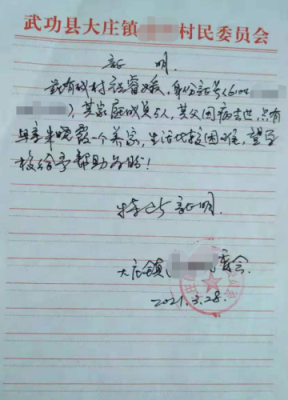 武功县大庄镇 村民委员会
证 明
兹有我村 睿 身份证号(610
),其家庭成员5人,其父因病去世,只有
母亲朱晓霞一个养家,生活比较困难,望学
校给予帮助为盼!
特此证明.
大庄镇 委会
2021.3.28.